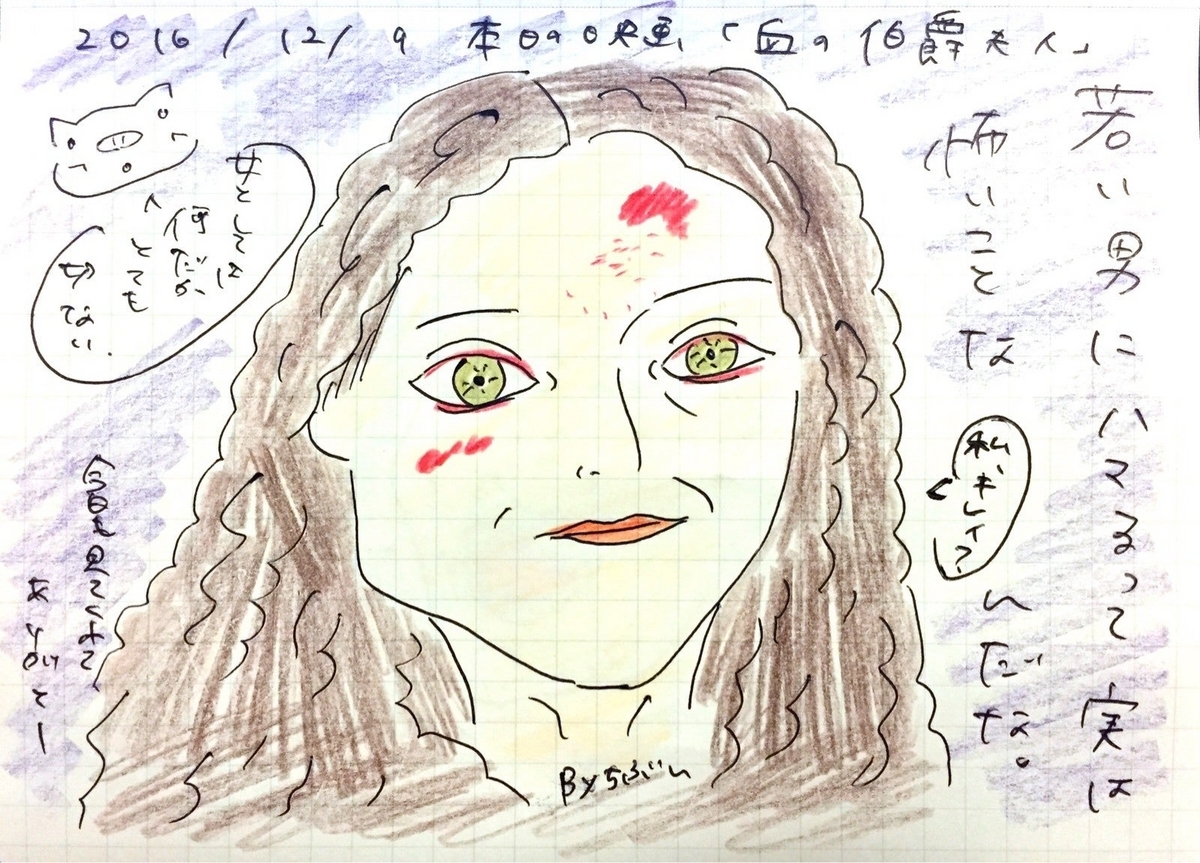 2016/12/9 本日の映画「血の伯爵夫人」
若い男にハマるって実は
怖いことなんだな。
女としては
何だか
とても
切ない。
私、キレイ?
今日も見てくれて、
ありがとー
By ちぶいい